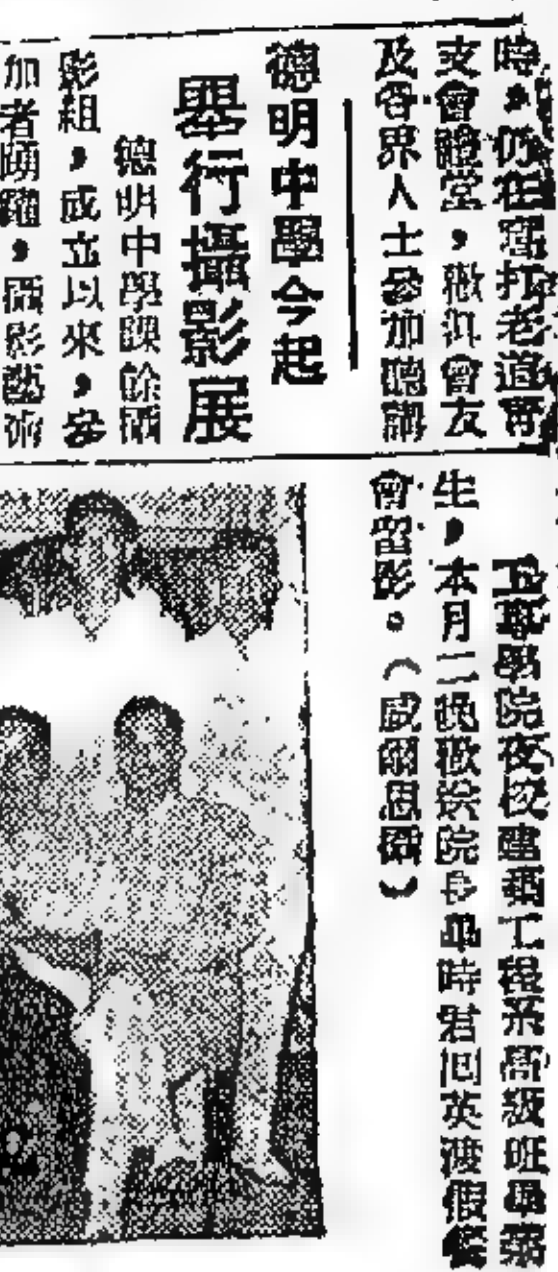 時，仍在窩打老道青
支會禮堂，歡迎會友
及各界人士參加聽講
德明中學今起
舉行攝影展
德明中學課餘攝
影組，成立以來，參
加者踴躍，攝影藝術
工專學院夜校建築工程系高級班畢業
生，本月二晚歡送院長畢時君回英渡假餐
會留影。（威爾思攝）